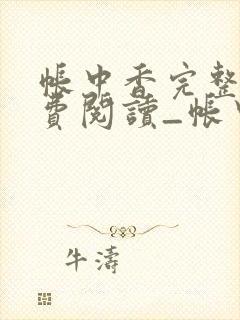 帳中香完整
費閱讀_帳
牛濤